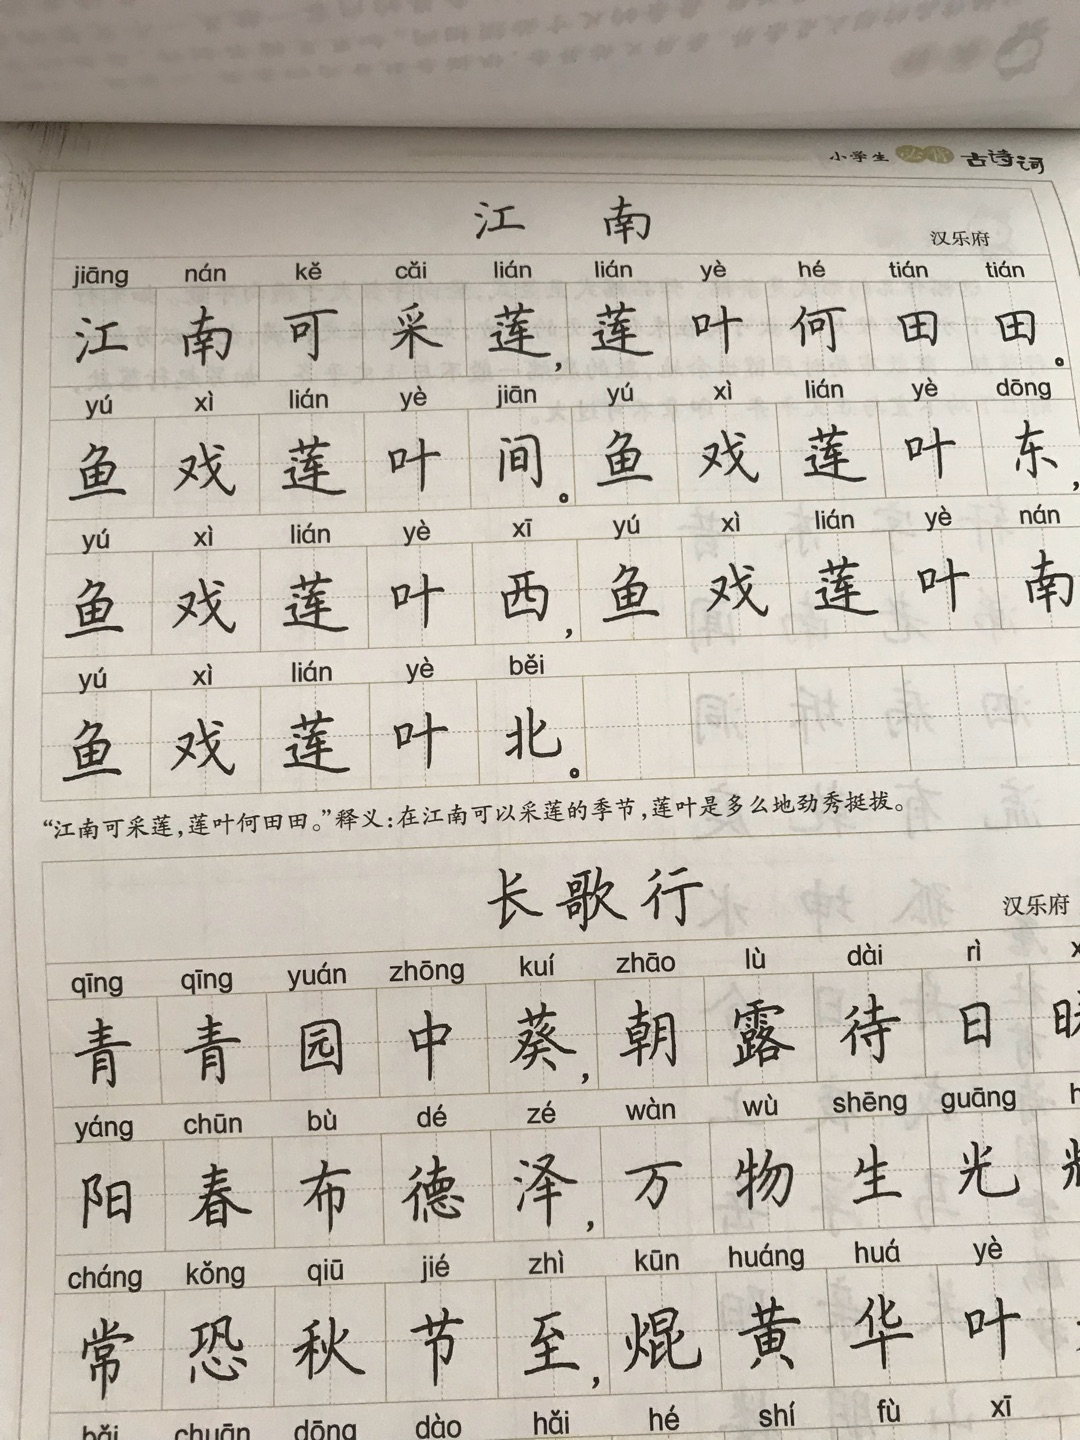 小学生必背古诗词
江 南
汉乐府
jiāng nán kě cǎi lián lián yè hé tián tián
江南可采莲，莲叶何田田。
yú xì lián yè jiān yú xì lián yè dōng
鱼戏莲叶间。鱼戏莲叶东，
yú xì lián yè xī yú xì lián yè nán
鱼戏莲叶西，鱼戏莲叶南
yú xì lián yè běi
鱼戏莲叶北。
“江南可采莲，莲叶何田田。”释义：在江南可以采莲的季节，莲叶是多么地劲秀挺拔。
长歌行
汉乐府
qīng qīng yuán zhōng kuí zhāo lù dài rì
青青园中葵，朝露待日
yáng chūn bù dé zé wàn wù shēng guāng
阳春布德泽，万物生光
cháng kǒng qiū jié zhì kūn huáng huá yè
常恐秋节至，焜黄华叶
bǎi chuān dōng dào hǎi hé shí fù xī